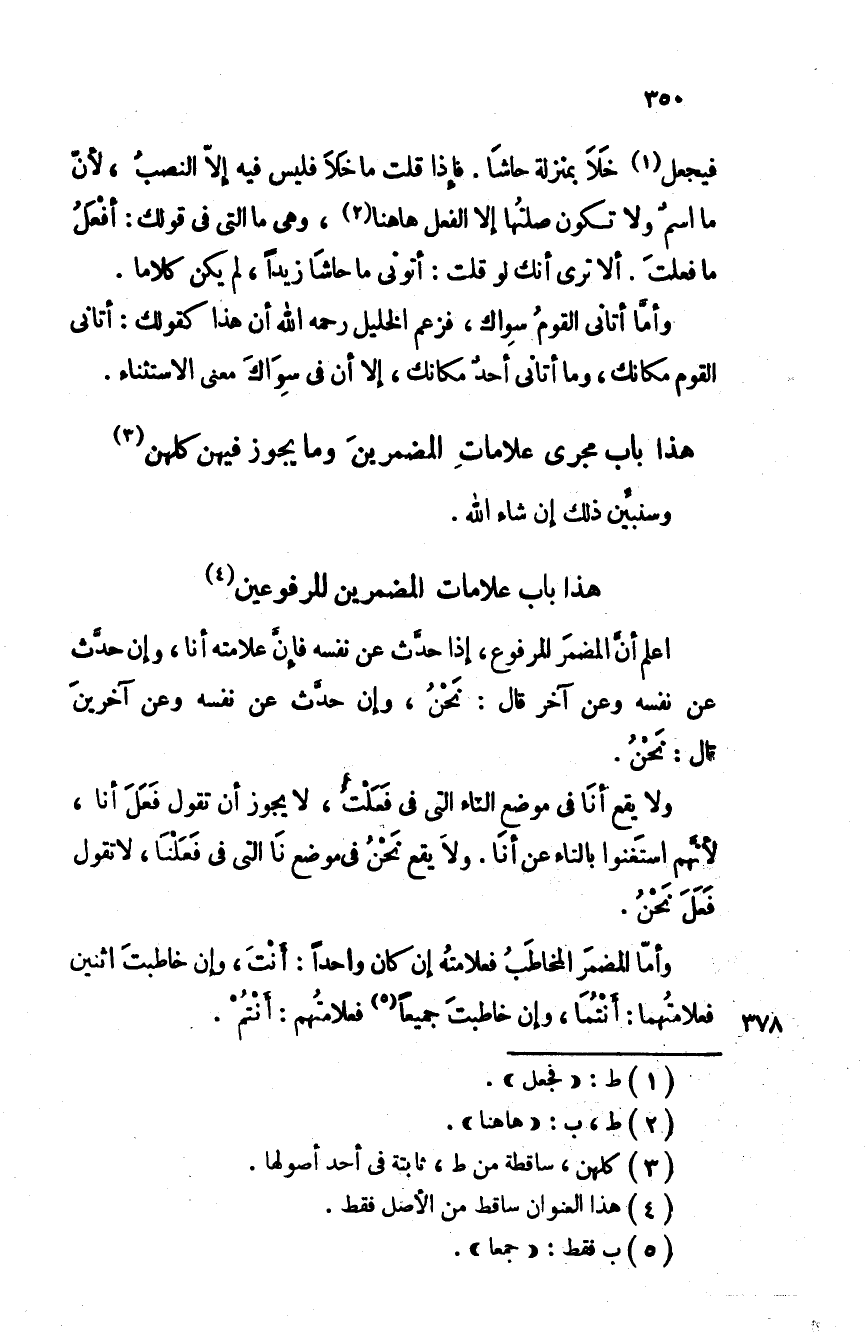 ٣٥٠
فيجعل(١) خَلَا بمنزلة حاشَا . فإِذا قلت ما خَلَا فليس فيه إلاّ النصبُ ، لأنّ
ما اسمٌ ولا تكون صلتُها إلا الفعل هاهنا(٢) ، وهى ما التى فى قولك : أفْعَلُ
ما فعلتَ . ألا ترى أنك لو قلت : أتونى ما حاشَا زيداً ، لم يكن كلاما .
وأمَّا أتانى القومُ سِواك ، فزعم الخليل رحمه الله أن هذا كقولك : أتانى
القوم مكانك ، وما أتانى أحدٌ مكانك ، إلا أن فى سِوَاكَ معنى الاستثناء .
هذا باب مجرى علاماتِ المضمرينَ وما يجوز فيهن كلهن(٣)
وسنبيِّن ذلك إن شاء الله .
هذا باب علامات المضمرين المرفوعين(٤)
اعلم أنَّ المضمَر المرفوع ، إذا حدَّث عن نفسه فإِنَّ علامته أنا ، وإن حدَّث
عن نفسه وعن آخر قال : نَحْنُ ، وإن حدَّث عن نفسه وعن آخرينَ
قال : نَحْنُ .
ولا يقع أنَا فى موضع التاء التى فى فَعَلْتُ ، لا يجوز أن تقول فَعَلَ أنا ،
لأنَّهم استَغنوا بالتاء عن أنَا . ولاَ يقع نَحْنُ فى موضع نَا التى فى فَعَلْنَا ، لا تقول
فَعَلَ نَحْنُ .
وأمّا المضمَر المخاطَبُ فعلامتهُ إن كان واحداً : أَنْتَ ، وإن خاطبتَ اثنين
فعلامتُهما : أَنْتُمَا ، وإن خاطبتَ جميعاً(٥) فعلامتُهم : أَنْتُمْ . ٣٧٨
( ١ ) ط : « فجعل » .
( ٢ ) ط ، ب : « هاهنا » .
( ٣ ) كلهن ، ساقطة من ط ، ثابتة فى أحد أصولها .
( ٤ ) هذا العنوان ساقط من الأصل فقط .
( ٥ ) ب فقط : « جمعا » .